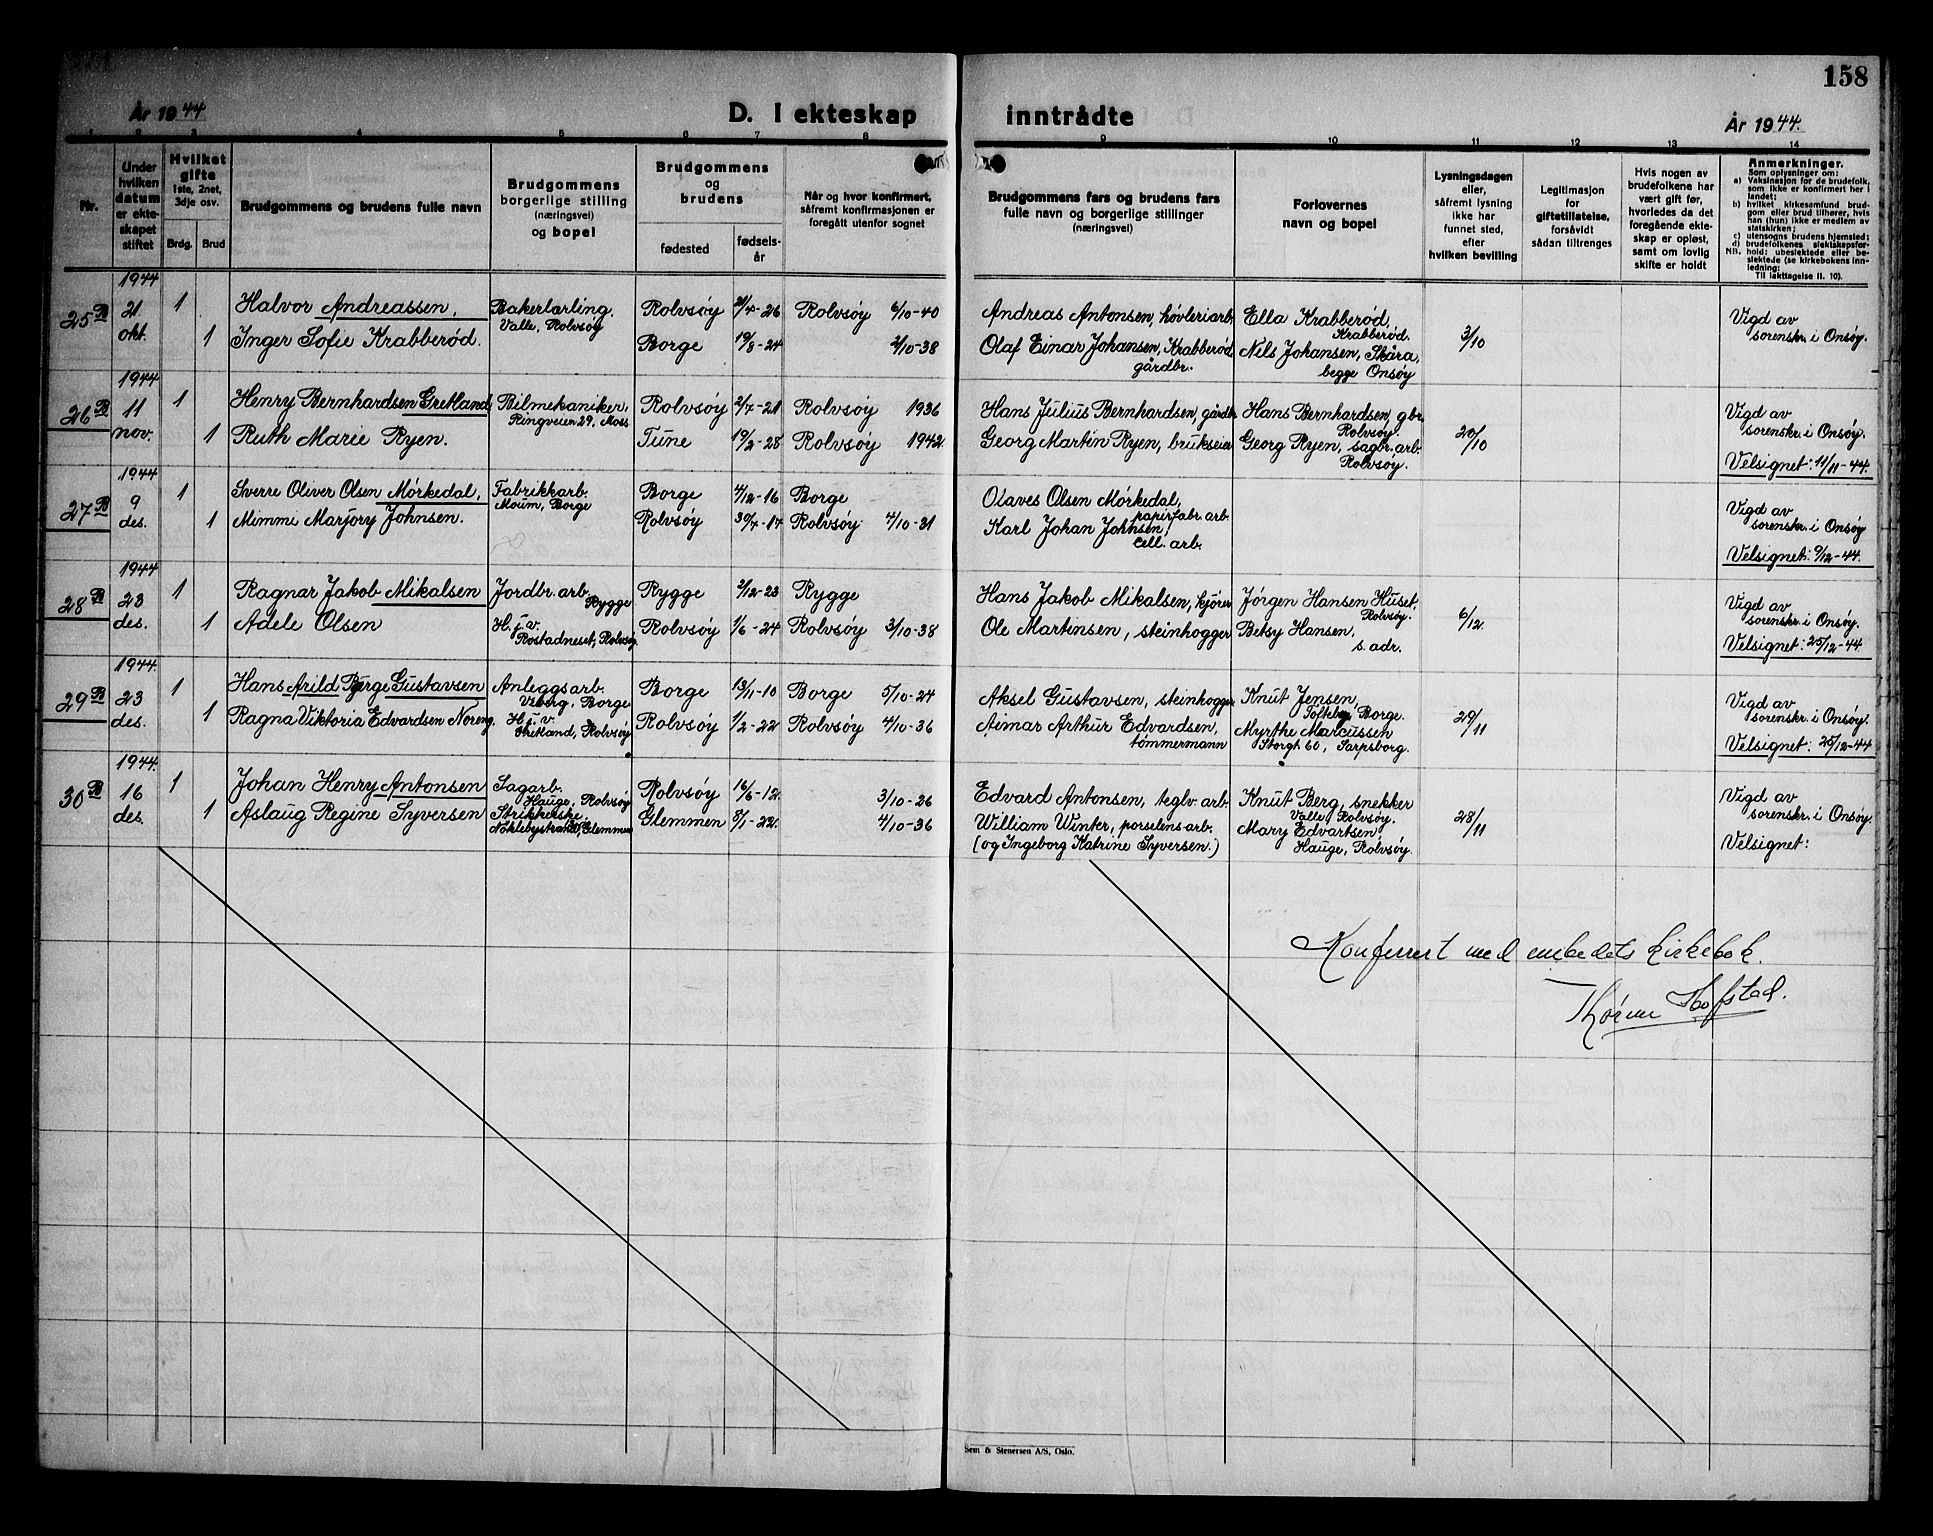 158
År 1944 D. I ekteskap inntrådte År 1944.
1 2 3 4 5 6 7 8 9 10 11 12 13 14
Nr.
Under hvilken datum er ekteskapet stiftet
Hvilket gifte 1ste, 2net, 3dje osv.
Brdg. Brud
Brudgommens og brudens fulle navn
Brudgommens borgerlige stilling (næringsvei) og bopel
Brudgommens og brudens
fødested fødselsår
Når og hvor konfirmert, såfremt konfirmasjonen er foregått utenfor sognet
Brudgommens fars og brudens fars fulle navn og borgerlige stillinger (næringsvei)
Forlovernes navn og bopel
Lysningsdagen eller, såfremt lysning ikke har funnet sted, efter hvilken bevilling
Legitimasjon for giftetillatelse, forsåvidt sådan tiltrenges
Hvis nogen av brudefolkene har vært gift før, hvorledes da det foregående ekteskap er opløst, samt om lovlig skifte er holdt
Anmerkninger.
Som oplysninger om:
a) Vaksinasjon for de brudefolk, som ikke er konfirmert her i landet;
b) hvilket kirkesamfund brudgom eller brud tilhører, hvis han (hun) ikke er medlem av statskirken;
c) utensogns brudens hjemsted;
d) brudefolkenes slektskapsforhold: ubeslektede eller beslektede (se kirkebokens innledning;
NB.
Til iakttagelse II. 10).
25B 1944 21 okt. 1 Halvor Andreassen, Bakerlærling, Valle, Rolvsøy Rolvsøy 21/4-26 Rolvsøy 6/10-40 Andreas Antonsen, høvleriarb. Ella Krabberød, Krabberød. 3/10 Vigd av sorenskr. i Onsøy.
1 Inger Sofie Krabberød. Borge 19/8-24 2/10-38 Olaf Einar Johansen, Krabberød, gårdbr. Nils Johansen, Skåra, begge Onsøy
26B 1944 11 nov. 1 Henry Bernhardsen Gretland, Bilmekaniker, Ringveien 29, Moss Rolvsøy 2/7-21 Rolvsøy 1936 Hans Julius Bernhardsen, gårdbr. Hans Bernhardsen, gbr. Rolvsøy. 20/10 Vigd av sorenskr. i Onsøy.
1 Ruth Marie Ryen. Tune 19/2-28 Rolvsøy 1942 Georg Martin Ryen, brukseier Georg Ryen, sagbr. arb. Rolvsøy. Velsignet: 11/11-44.
27B 1944 9 des. 1 Sverre Oliver Olsen Mørkedal, Fabrikkarb. Moum, Borge Borge 4/12-16 Borge Olaves Olsen Mørkedal, papirfabr. arb. Vigd av sorenskr. i Onsøy
1 Mimmi Marjory Johnsen. Rolvsøy 30/4-14 Rolvsøy 4/10-31 Karl Johan Johnsen, cell. arb. Velsignet: 9/12-44.
28B 1944 23 des. 1 Ragnar Jakob Mikalsen Jordbr. arb. Rygge Rygge 2/12-23 Rygge Hans Jakob Mikalsen, kjører Jørgen Hansen Huset, Rolvsøy. 6/12 Vigd av sorenskr. i Onsøy.
1 Adele Olsen H. j. v. Rostadneset, Rolvsøy Rolvsøy 1/6-24 Rolvsøy 3/10-38 Ole Martinsen, steinhogger Betsy Hansen, s. adr. Velsignet: 25/12-44.
29B 1944. 23 des. 1 Hans Arild Børge Gustavsen Anleggsarb. Viberg, Borge Borge 13/11-10 Borge 5/10-24 Aksel Gustavsen, steinhogger Knut Jensen, Tofteberg, Borge. 29/11 Vigd av sorenskr. i Onsøy.
1 Ragna Viktoria Edvardsen Noreng. H. j. v. Gretland, Rolvsøy Rolvsøy 1/2-22 Rolvsøy 4/10-36 Aimar Arthur Edvardsen, tømmermann Myrthe Marcussen Storgt. 60, Sarpsborg. Velsignet: 25/12-44
30B 1944. 16 des. 1 Johan Henry Antonsen Sagarb. Hauge, Rolvsøy Rolvsøy 16/6-12 3/10-26 Edvard Antonsen, teglv. arb. Knut Berg, snekker Valle, Rolvsøy. 28/11 Vigd av sorenskr. i Onsøy.
1 Aslaug Regine Syversen Strikkerske, Glemmen Glemmen 8/1-22 4/10-36 William Winter, porselens-arb. (og Ingeborg Katrine Syversen.) Mary Edvartsen Hauge, Rolvsøy. Velsignet:
Konferert med embedets kirkebok.
Hofstad.
Sem & Stenersen A/S, Oslo.